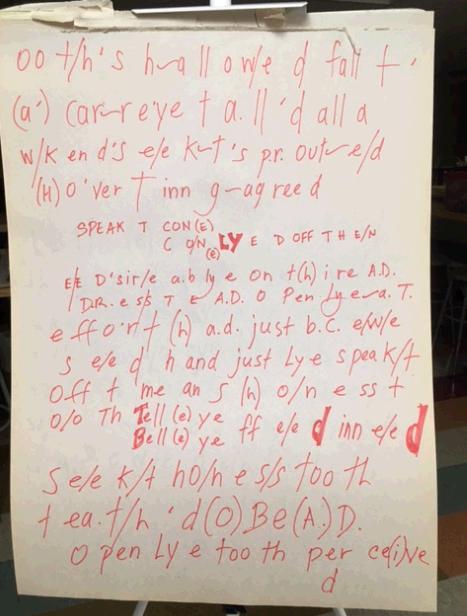 oo t/h's h~allow/e d fall t'
(a') car~r eye t a.ll 'd all a
w/k en d's e/e k~t's pr. out~e/d
'(H) O'ver T inn g~agreed
SPEAK T CON(E)
C O/N (e) LY E D OFF TH E/N
E/E D'sir/e a.b ly e on t(h) ire A.D.
D.R. e s/s T E A.D. O Pen ly e~a. T.
e ff o r t (h) a.d. just b.c. e/w/e
s e/e d h and just Ly e speak/t
Off t me an s (h) o/n e ss t
O/O Th Tell (e) ye
Bell (e) ye ff e/e d inn e/e d
S e/e k/t ho/n e s/s too th
t ea. t/h 'd (O) Be (A.) D.
O pen Ly e too th per ce(i)ve
d